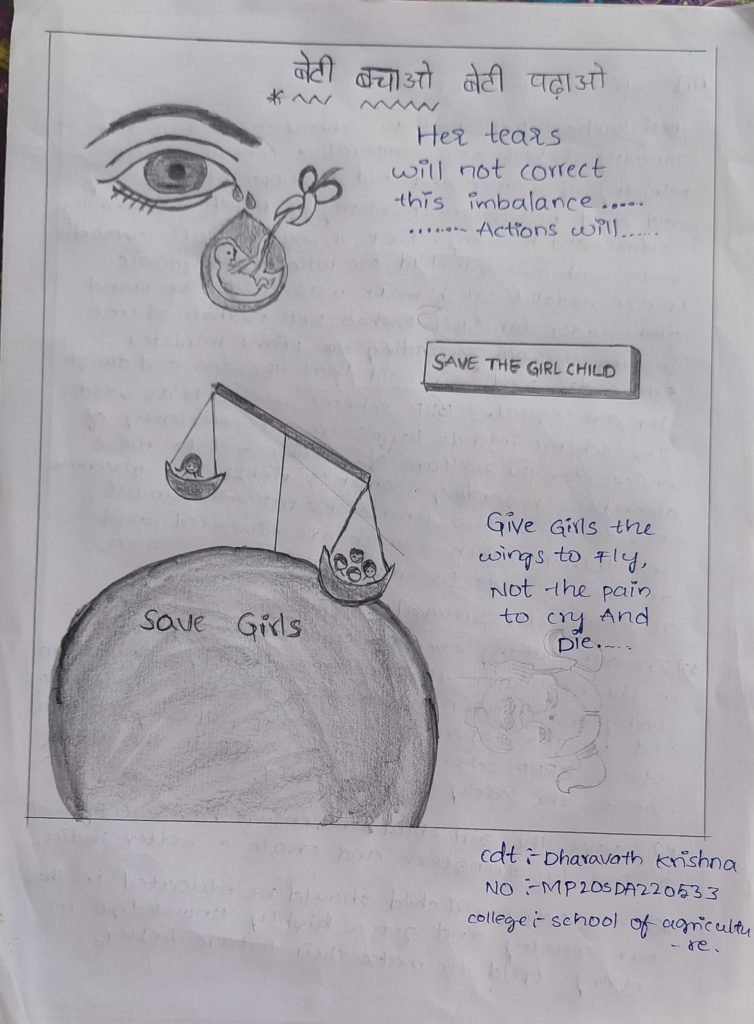 बेटी बचाओ बेटी पढ़ाओ
Her tears
will not correct
this imbalance .....
....... Actions will.....
SAVE THE GIRL CHILD
Give Girls the
wings to Fly,
Not the pain
to cry And
Die.....
Save Girls
cdt :- Dharavath Krishna
NO :- MP20SDA220533
college :- school of agricultu
-re.